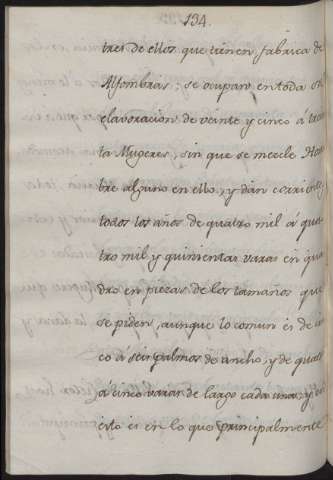 134.
tres de ellos que tienen fabrica de
Alfombras; se ocupan en toda su
elavoracion de veinte y cinco á trein
ta Mugeres, sin que se mezcle Hom
bre alguno en ello, y dan corrientes
todos los años de quatro mil á qua
tro mil y quinientas varas en qua
dro en piezas de los tamaños que
se piden, aunque lo comun es de cin
co á seis palmos de ancho, y de quatro
á cinco varas de largo cada una, y
esto es en lo que principalmente